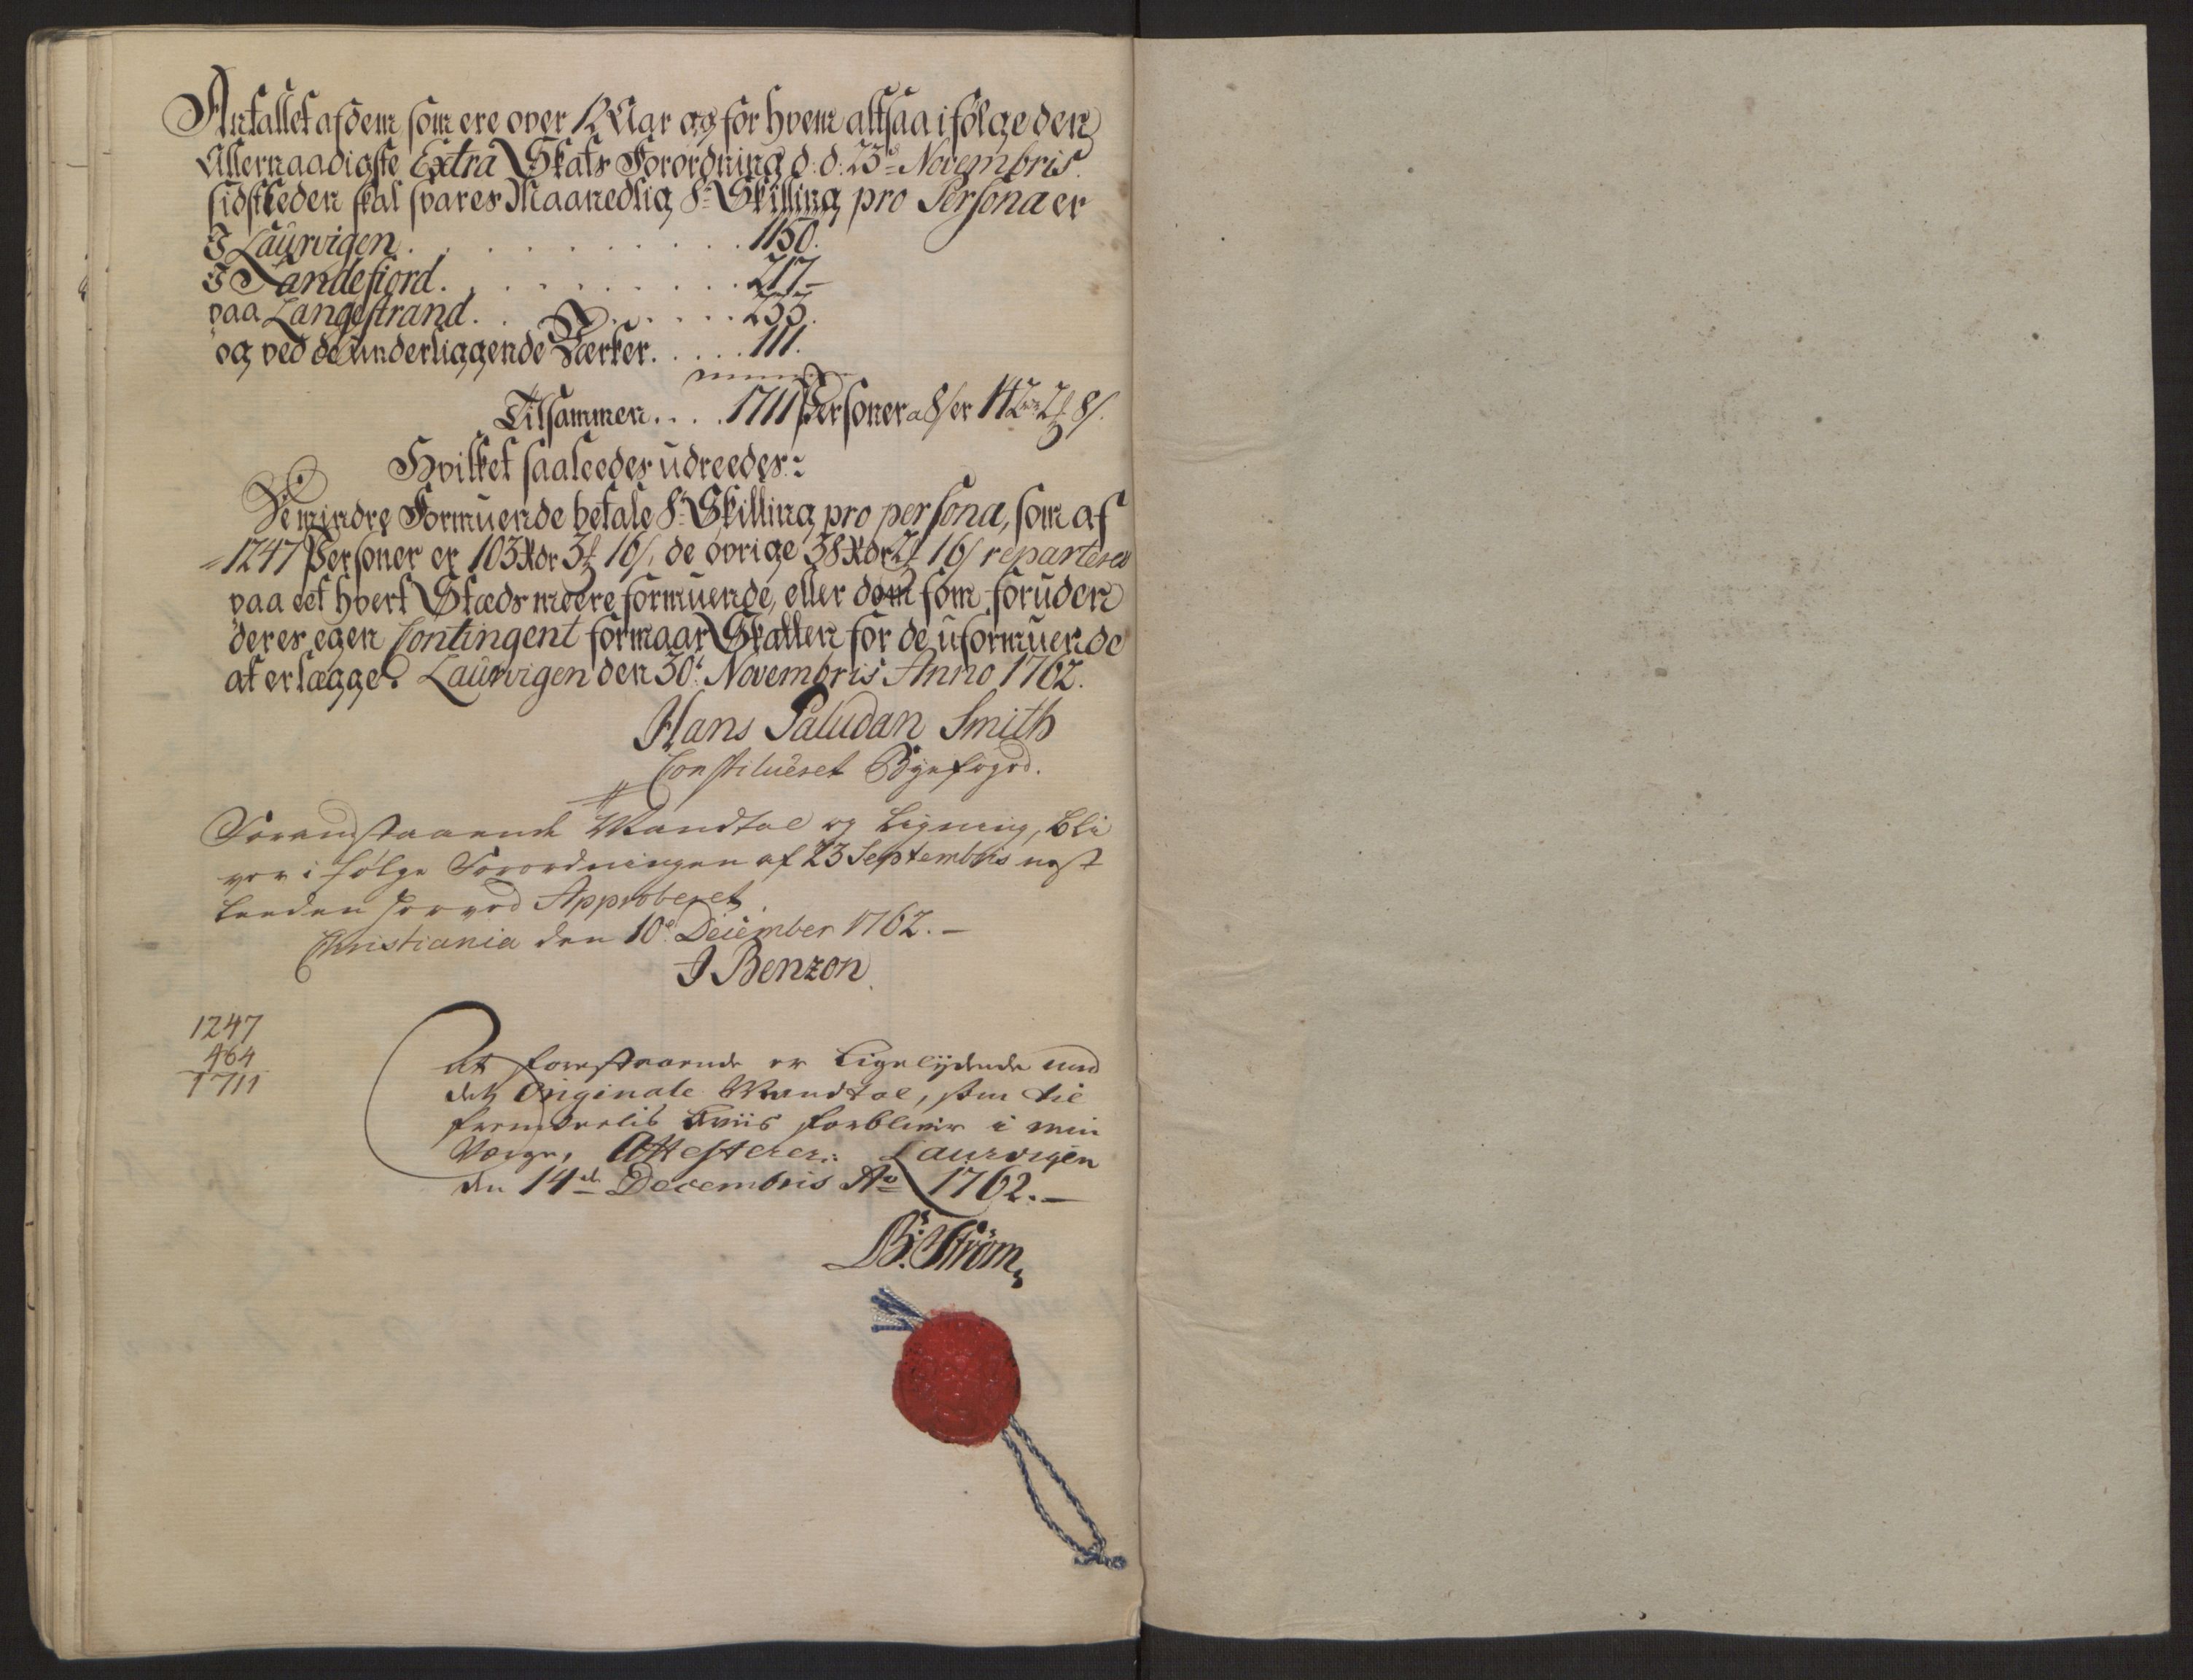 Antallet af dem som ere over 12 Aar og for hvem altsaa ifølge den
Allernaadigste Extra Skats Forordning d: d: 23de Novembris
sidstleden skal svares Maanedlig 8te Skilling pro Persona er
I Laurvigen . . . . . . . . . . 1150.
I Sandefiord . . . . . . . . . . 217 -
paa Langestrand . . . . . . . . 233.
og ved de underliggende Værker . . . . . 111.
Tilsammen . . . . 1711 Personer a 8 s er 142 rdr 2 ƒ 8 s.
Hvilket saaleedes udreedes:
De mindre Formuende betale 8te Skilling pro persona, som af
1247 Personer er 103 Rdr 3 ƒ 16 s, de øvrige 38 Rdr 2 ƒ 16 s reparteres
paa eet hvert Stæds meere formuende, eller dem som foruden
deres egen Contingent formaar Skatten for de uformuende
at erlægge. Laurvigen den 30t Novembris Anno 1762.
Hans Paludan Smith
Constitueret Byefogd.
Foranstaaende Mandtal og Ligning, bli
ver i følge Forordningen af 23 Septembris næst
leeden herved Approberet
Christiania den 10de December 1762. -
J Benzon.
1247
464
1711
At forestaaende er Ligelydende med
det Originale Mandtal, som til
fremdeelis Beviis forbliver i min
Værge, Attesterer: Laurvigen
den 14de Decembris Ao 1762. -
B: Strøm